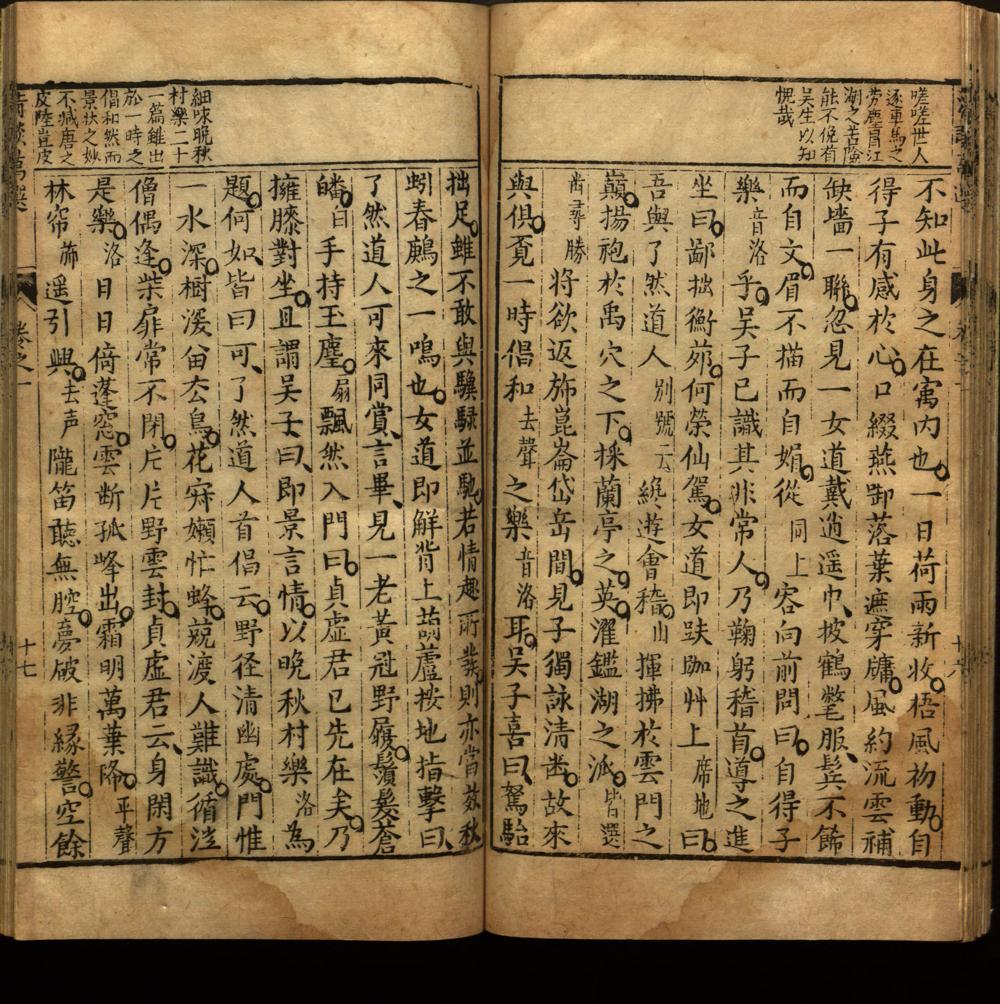 嗟嗟世人
逐車馬之
勞塵冒江
湖之苦險
能不俛有
吳生以知
愧哉
不知此身之在寓内也一日荷雨新收梧風初動自
得子有感於心口綴燕卸落葉穿牗風約流雲補
缺墻一聯忽見一女道戴逍遥巾披鶴氅服鬂不餙
而自文眉不描而自媚從同上容向前問曰自得子
樂音洛乎吳子已識其非常人乃鞠躬稽首導之進
坐曰鄙拙衡茆何榮仙駕女道即趺跏艸上席地曰
吾與了然道人别號云纔遊會稽山揮拂於雲門之
巔揚袍於禹穴之下採蘭亭之英濯鑑湖之派皆選
尋勝將欲返斾崑崙岱岳間見子獨詠清耑故來
與俱覔一時倡和去聲之樂音洛耳吳子喜曰駑駘
拙足雖不敢與驥騄並馳若情趣所發則亦當效秋
蚓春鶊之一鳴也女道即解背上葫蘆按地指擊曰
了然道人可來同賞言畢見一老黃冠野履鬚髮蒼
皤白手持玉麈扇飄然入門曰貞虚君已先在矣乃
擁膝對坐且謂吳子曰即景言情以晚秋村樂洛為
題何如皆曰可了然道人首倡云野径清幽處門惟
一水深樹深笛杳鳥花寂嬾忙蜂兢渡人難識循
僧偶逢柴扉常不閉片片野雲封貞虚君云身閑方
是樂洛日日倚蓬窓雲断孤峰出霜明萬葉降平聲
林帘斾遥引興去声隴笛聽無腔夢破非緣警空餘
細味晚秋
村樂二十
一篇雖出
於一時之
倡和然而
景狀之妙
不減唐之
皮陸豈皮
卷之一
十七
十六